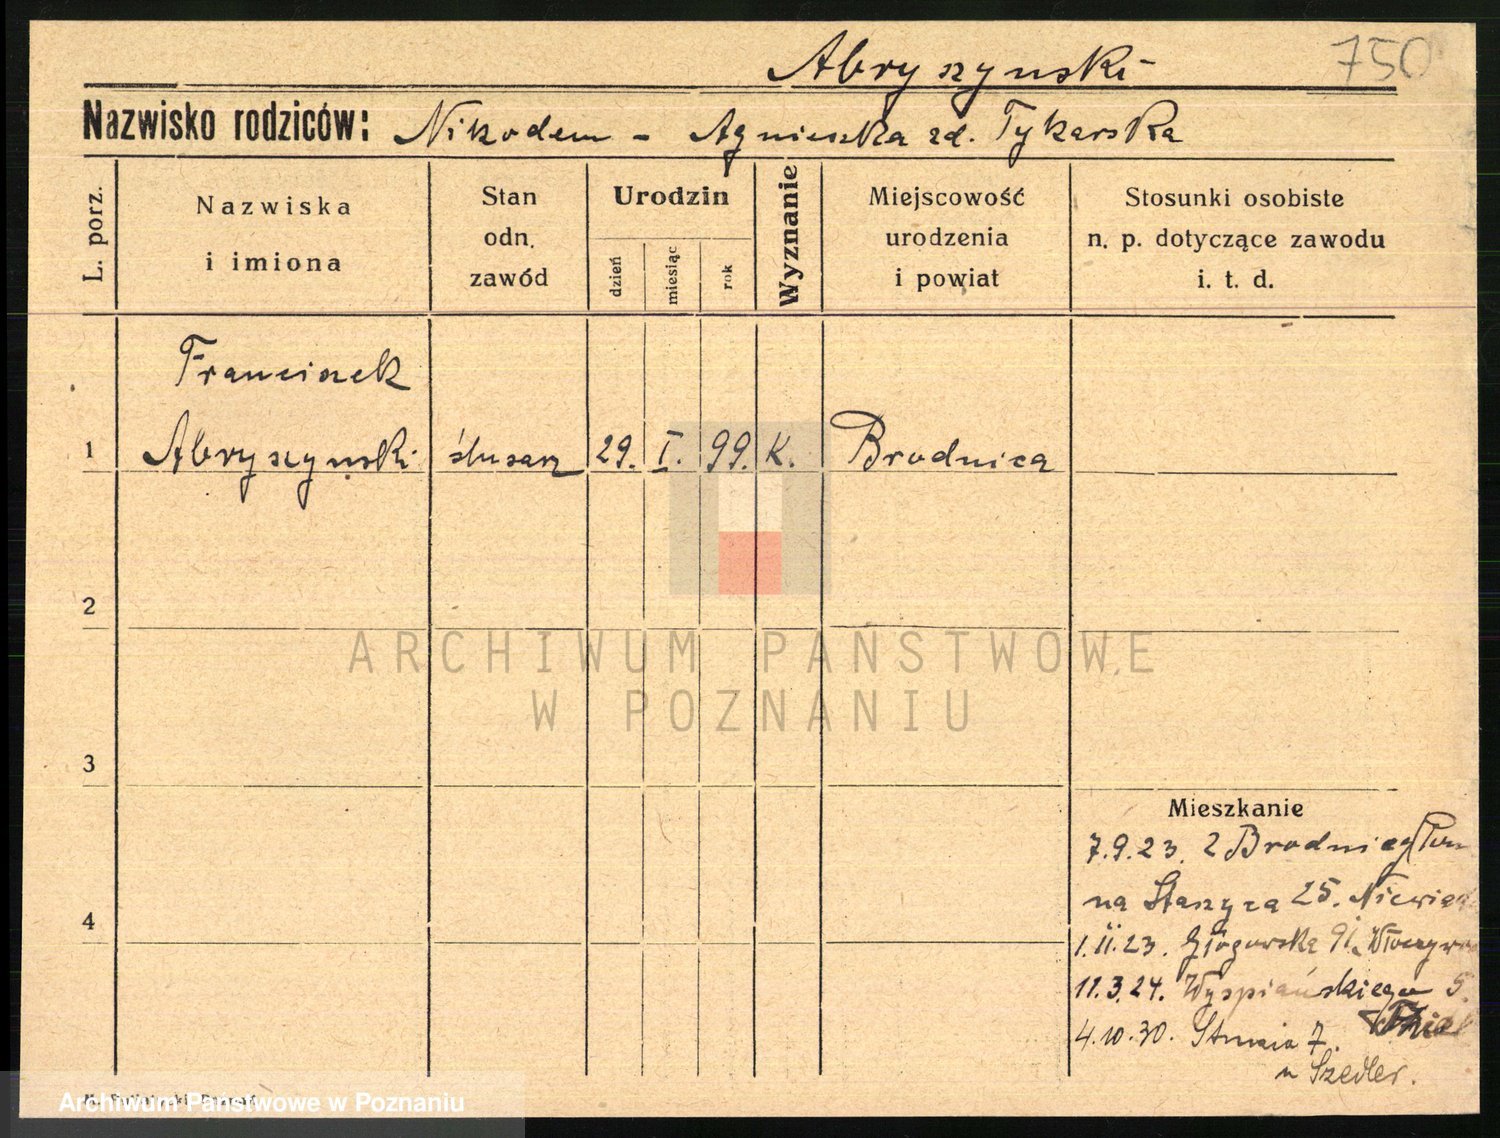 Abryszynski 750
Nazwisko rodziców: Nikodem - Agnieszka zd. Tykarska
L. porz.
Nazwiska
i imiona
Stan
odn.
zawód
Urodzin
dzień
miesiąc
rok
Wyznanie
Miejscowość
urodzenia
i powiat
Stosunki osobiste
n. p. dotyczące zawodu
i. t. d.
Franciszek
1 Abryszynski ślusarz 29. I. 99. K. Brodnica
2
3
4
Mieszkanie
7.9.23. z Brodnicy
na Staszyca 25.
1.11.23. Głogowska 91.
11.3.24. Wyspiańskiego 5.
4.10.30. 7.
u Szedler.
ARCHIWUM PAŃSTWOWE
W POZNANIU
Archiwum Państwowe w Poznaniu